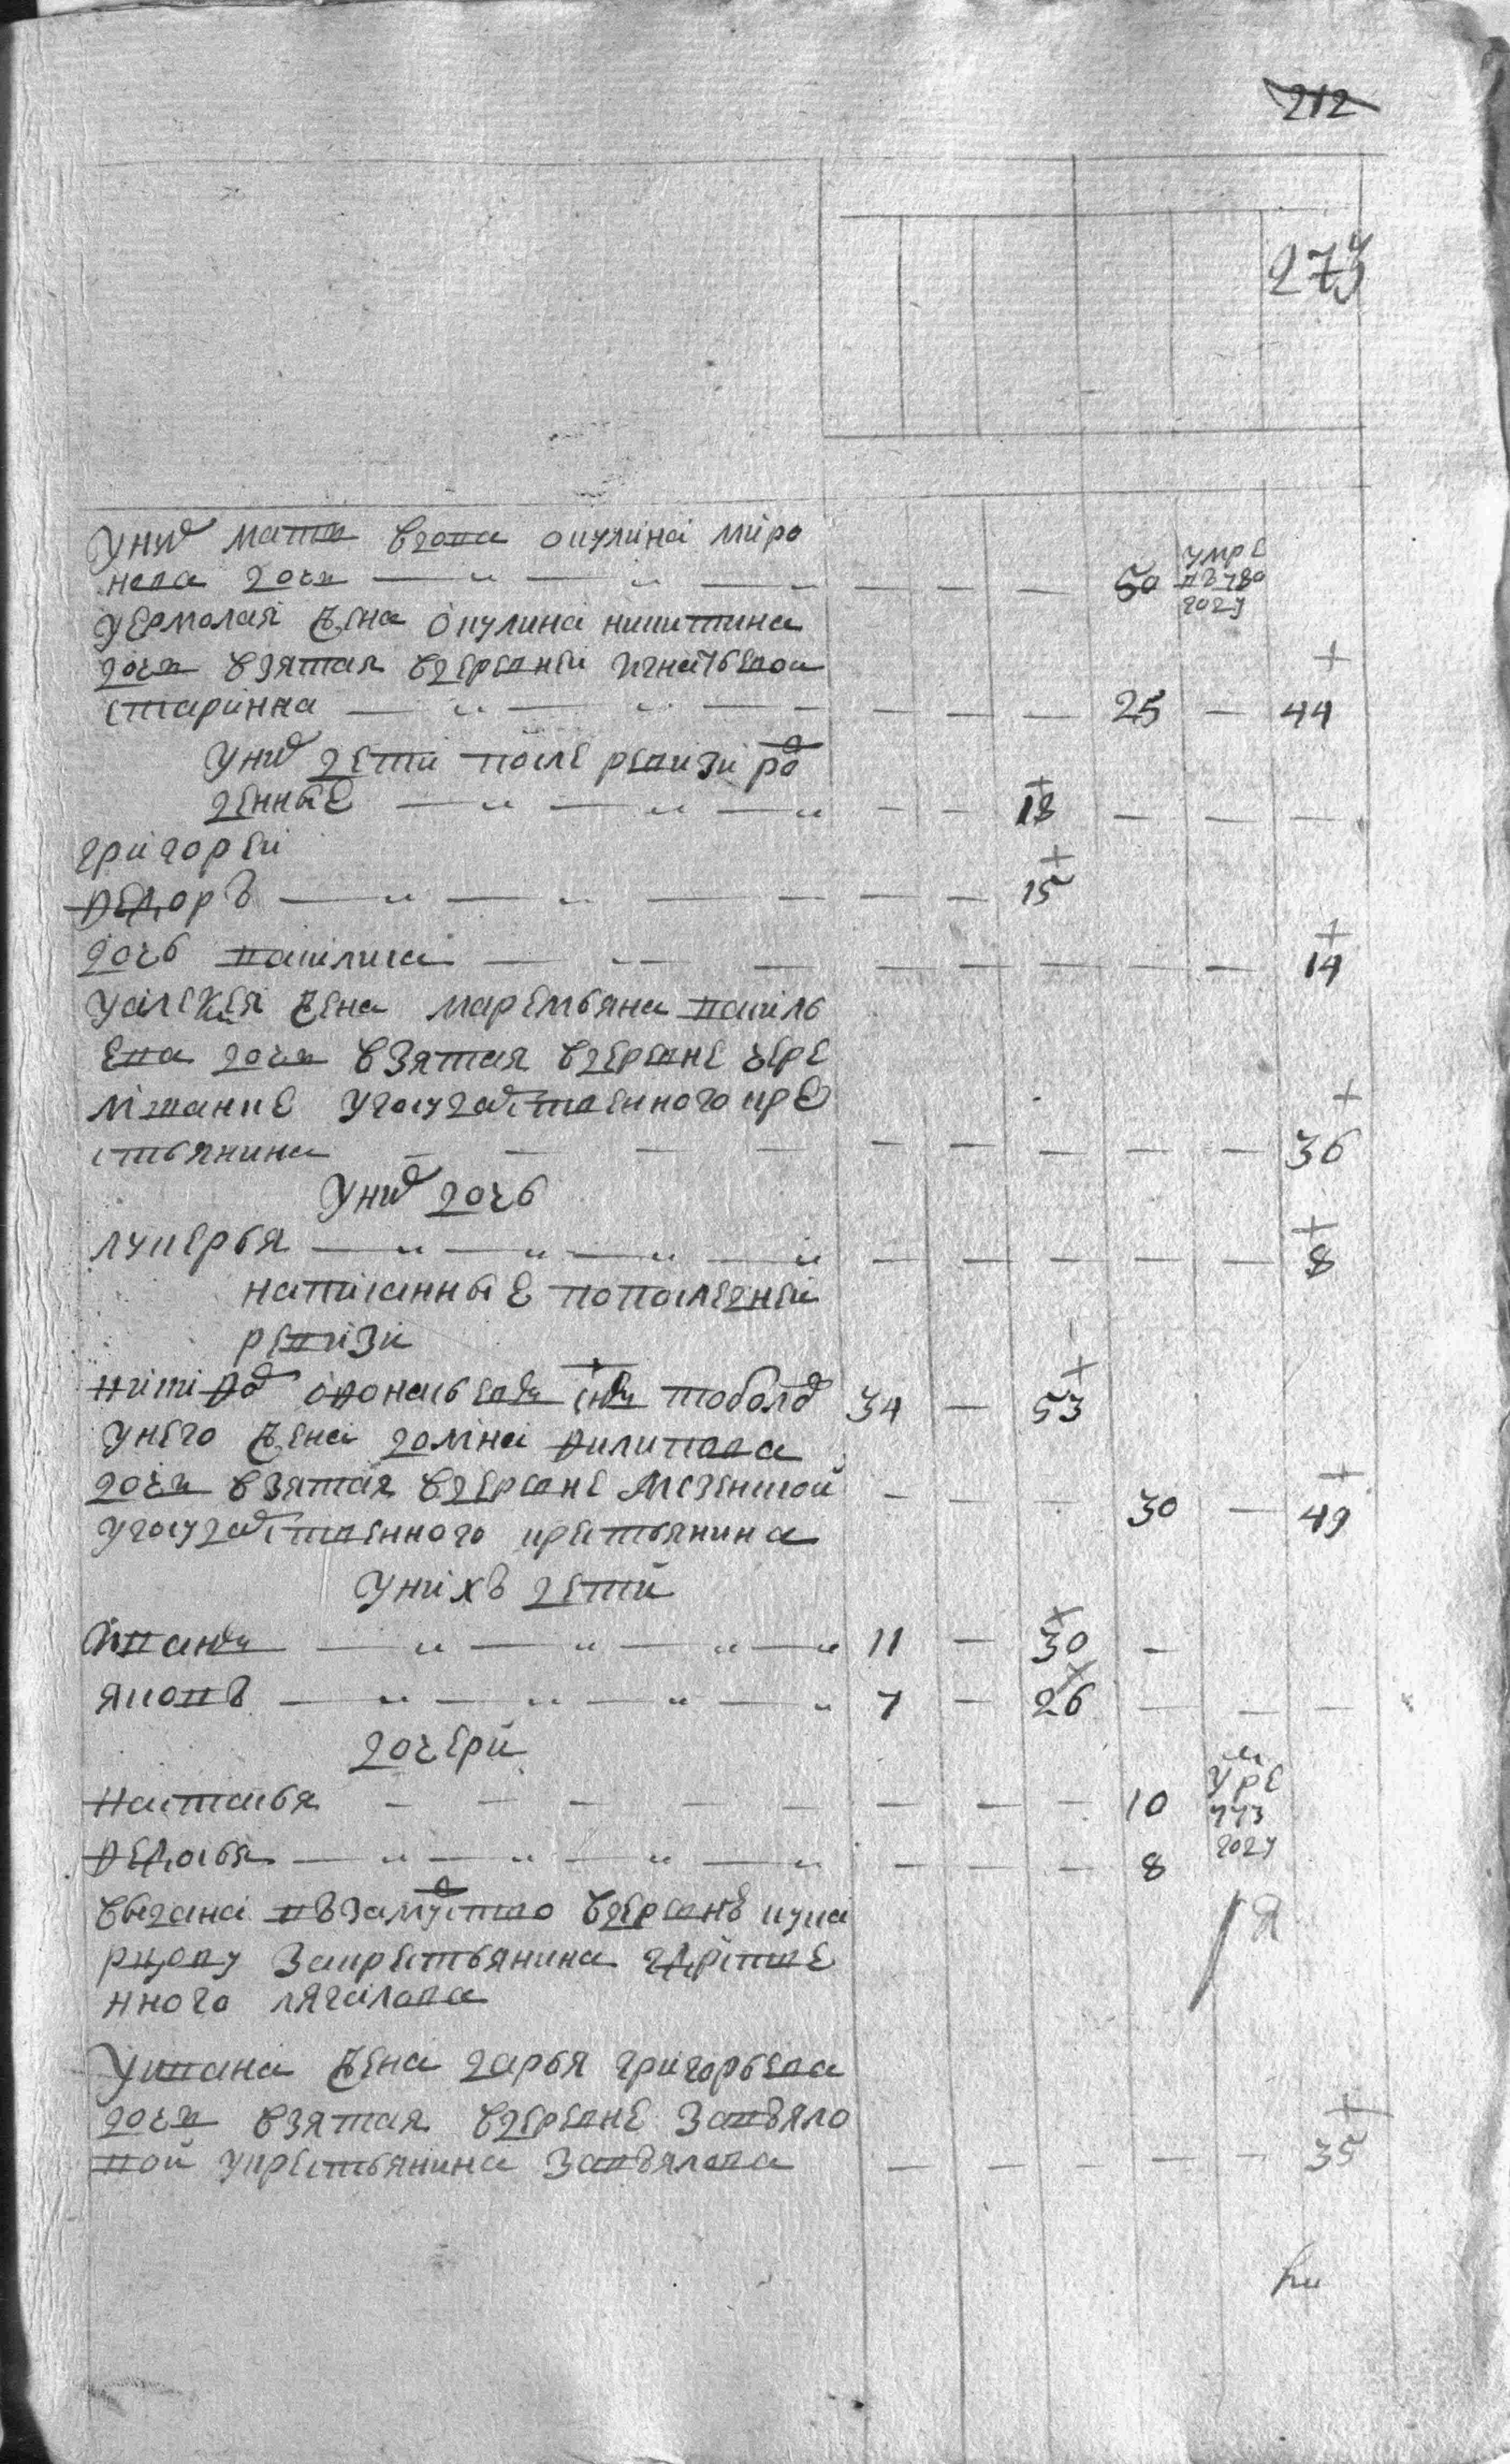 212
273
Уних мать вдова окулина миро
нова дочь — " — " — — — — — 50 умре
в 780
году
У ермолая жена окулина никитина
дочь взятая вдеревни игнатьевои
старинна — " — " — — — — — 25 — 44
Уних дети после ревизи ро
денные — " — " — " — — 18 — — —
григореи
федоръ — " — " — — — — 15
дочь василиса — - - — — — — — — — 14
Уалексея жена маремьяна василь
ева дочь взятая вдеревне чере
мшанке угосударственного кре
стьянина — — — — — — — — — 36
Уних дочь
лукерья — " — " — " — " — — — — — 8
написанные попоследнеи
ревизи
никифор афонасьевъ сынъ тоболов 34 — 53
Унего жена домна филипова
дочь взятая вдеревне мезенской — — — 30 — 49
угосударственного крестьянина
Унихъ дети
Иванъ — " — " — " — " 11 — 30 —
яковъ — " — " — " — " 7 — 26 — — —
дочери
настасья — — — — — — — — 10 умре
773
году
федосья — " — " — " — " — — — 8
выдана взамуство вдеревнѣ кука
рцову закрестьянина
нного лягалова
Уивана жена дарья григорьева
дочь взятая вдеревне завьяло
вой укрестьянина завьялова — — — — — 35